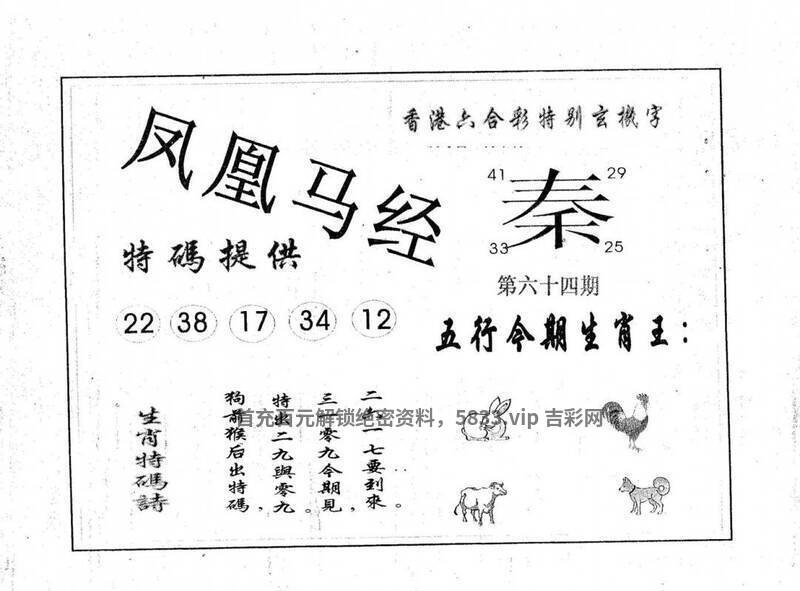 香港六合彩特别玄機字
凤凰马经
41
29
秦
33
25
特碼提供
第六十四期
22 38 17 34 12
五行今期生肖王：
首充百元解锁绝密资料，5833.vip 吉彩网
二七要到來。
三一零九今期見，
特出二九與零九。
狗前猴后出特碼，
生肖特碼詩